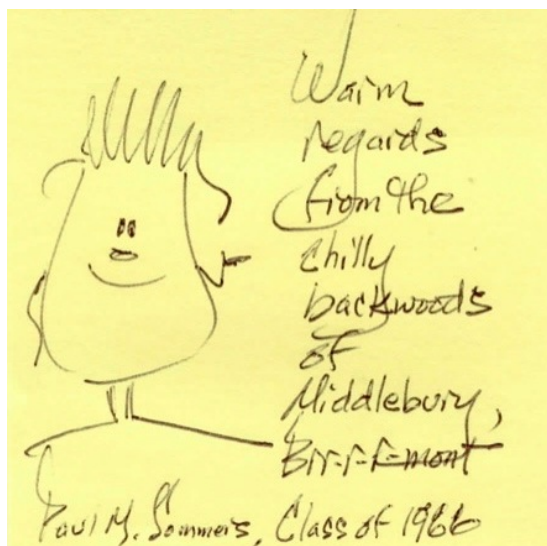 Warm
regards
from the
chilly
backwoods
of
Middlebury,
Brr-r-r-mont
Paul M. Sommers, Class of 1966